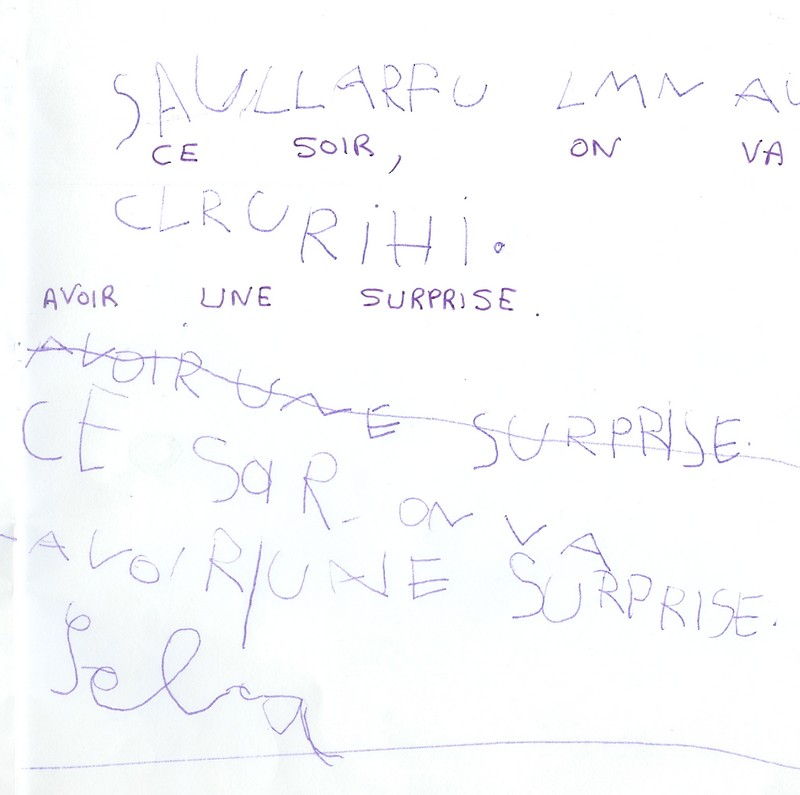 SAULLARFU LMN AU
CE SOIR, ON VA
CLRURIHI.
AVOIR UNE SURPRISE.
AVOIR UNE SURPRISE.
CE SOIR ON VA
AVOIR/UNE SURPRISE.
Selva